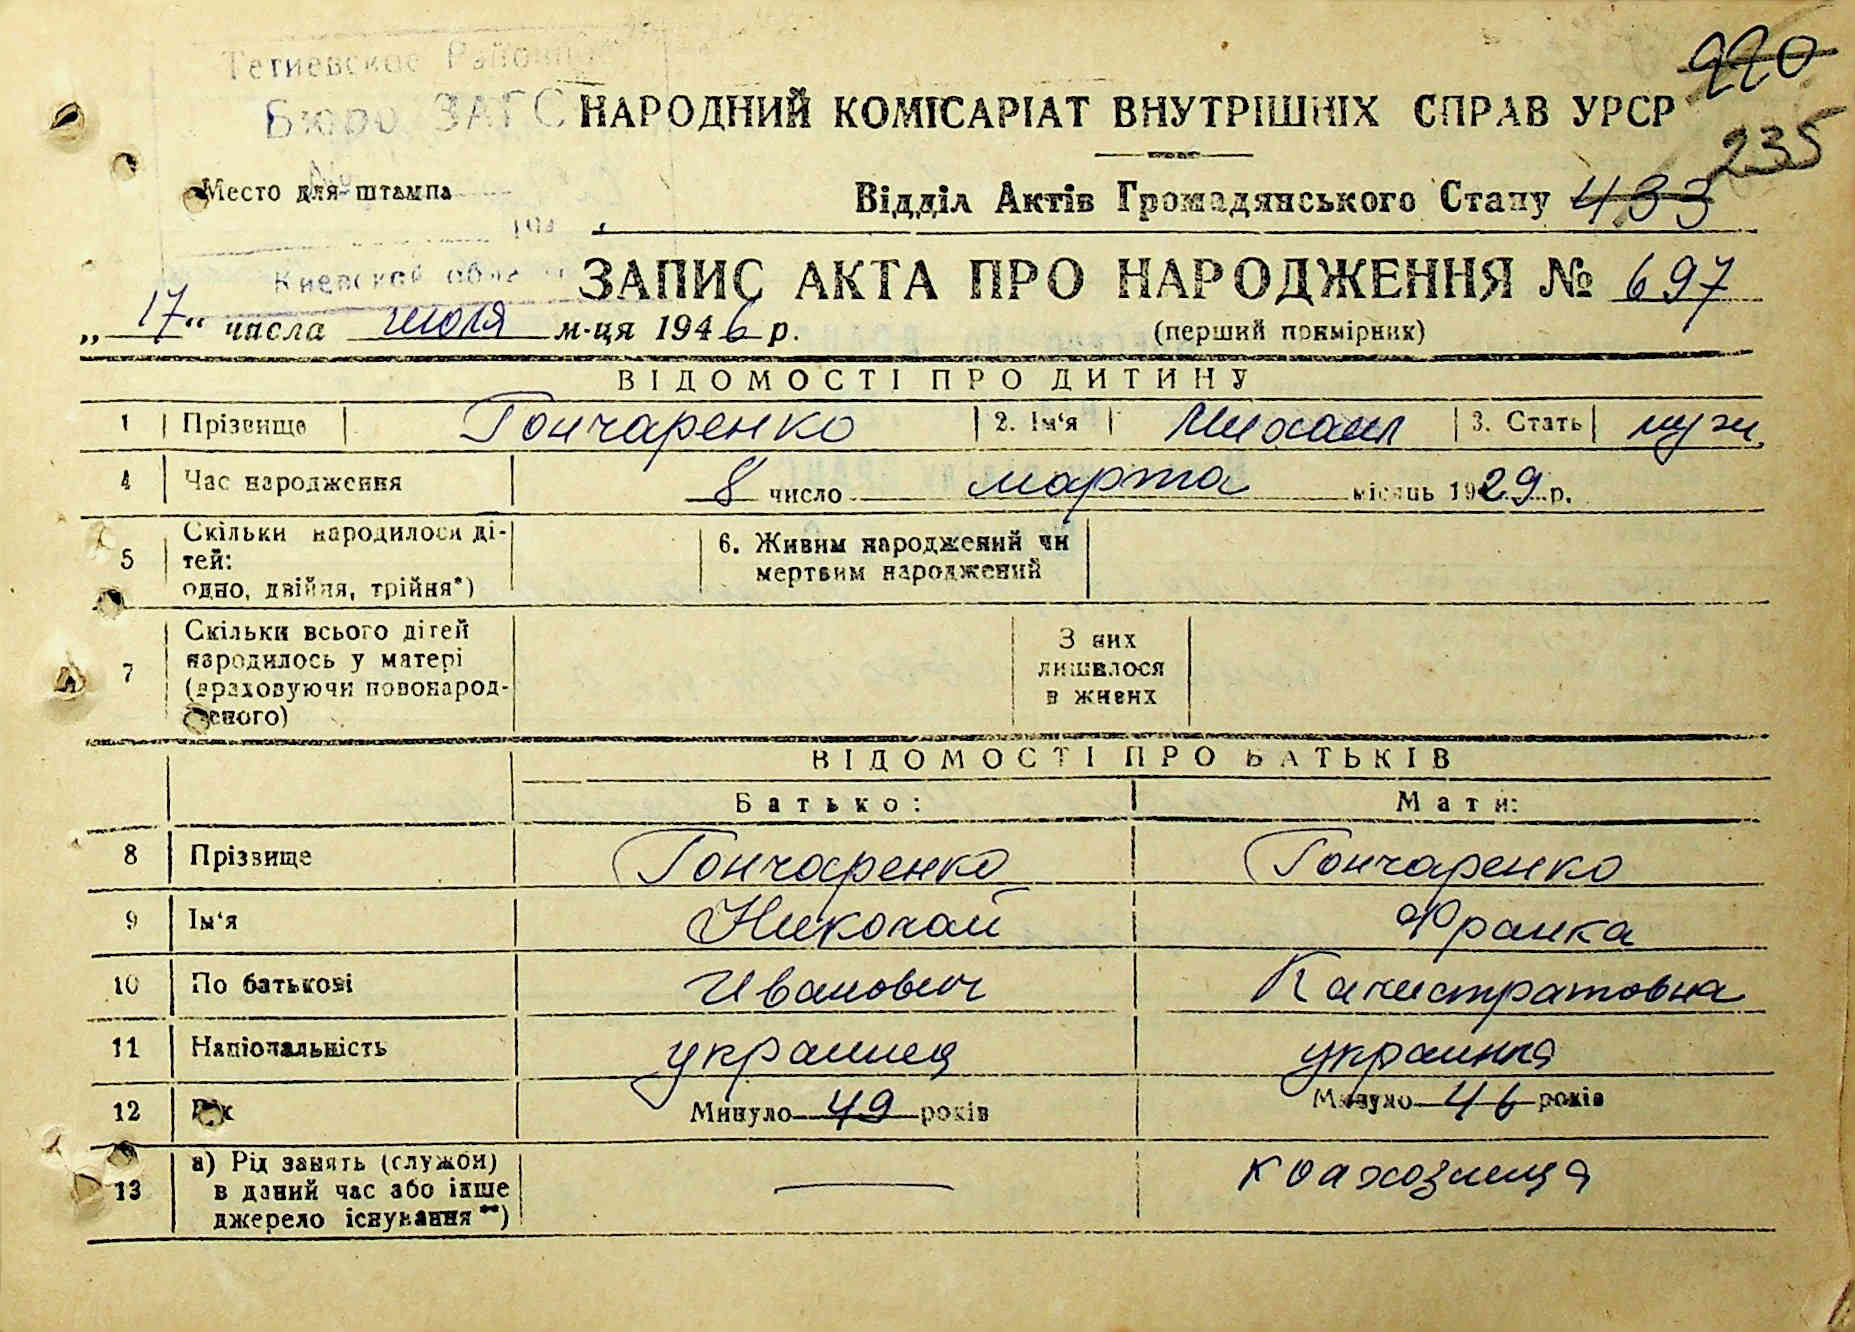 Тетиевское Районное
990
Бюро ЗАГС
НАРОДНИЙ КОМІСАРІАТ ВНУТРІШНІХ СПРАВ УРСР
235
Место для штампа
Відділ Актів Громадянського Стану 433
194
Киевской обл
ЗАПИС АКТА ПРО НАРОДЖЕННЯ № 697
„17“ числа июля м-ця 1946 р.
(перший примірник)
ВІДОМОСТІ ПРО ДИТИНУ
1 Прізвище Гончаренко 2. Ім'я Михаил 3. Стать муж.
4 Час народження 8 число марта місяць 1929 р.
5 Скільки народилося ді-
тей:
одно, двійня, трійня*)
6. Живим народжений чи
мертвим народжений
7 Скільки всього дітей
народилось у матері
(враховуючи новонарод-
женого)
З них
лишилося
в живих
ВІДОМОСТІ ПРО БАТЬКІВ
Батько: Мати:
8 Прізвище Гончаренко Гончаренко
9 Ім'я Николай Франка
10 По батькові Иванович Калистратовна
11 Національність украинец украинка
12 Вік Минуло 49 років Минуло 46 років
13 а) Рід занять (служби)
в даний час або інше
джерело існування**)
— колхозница